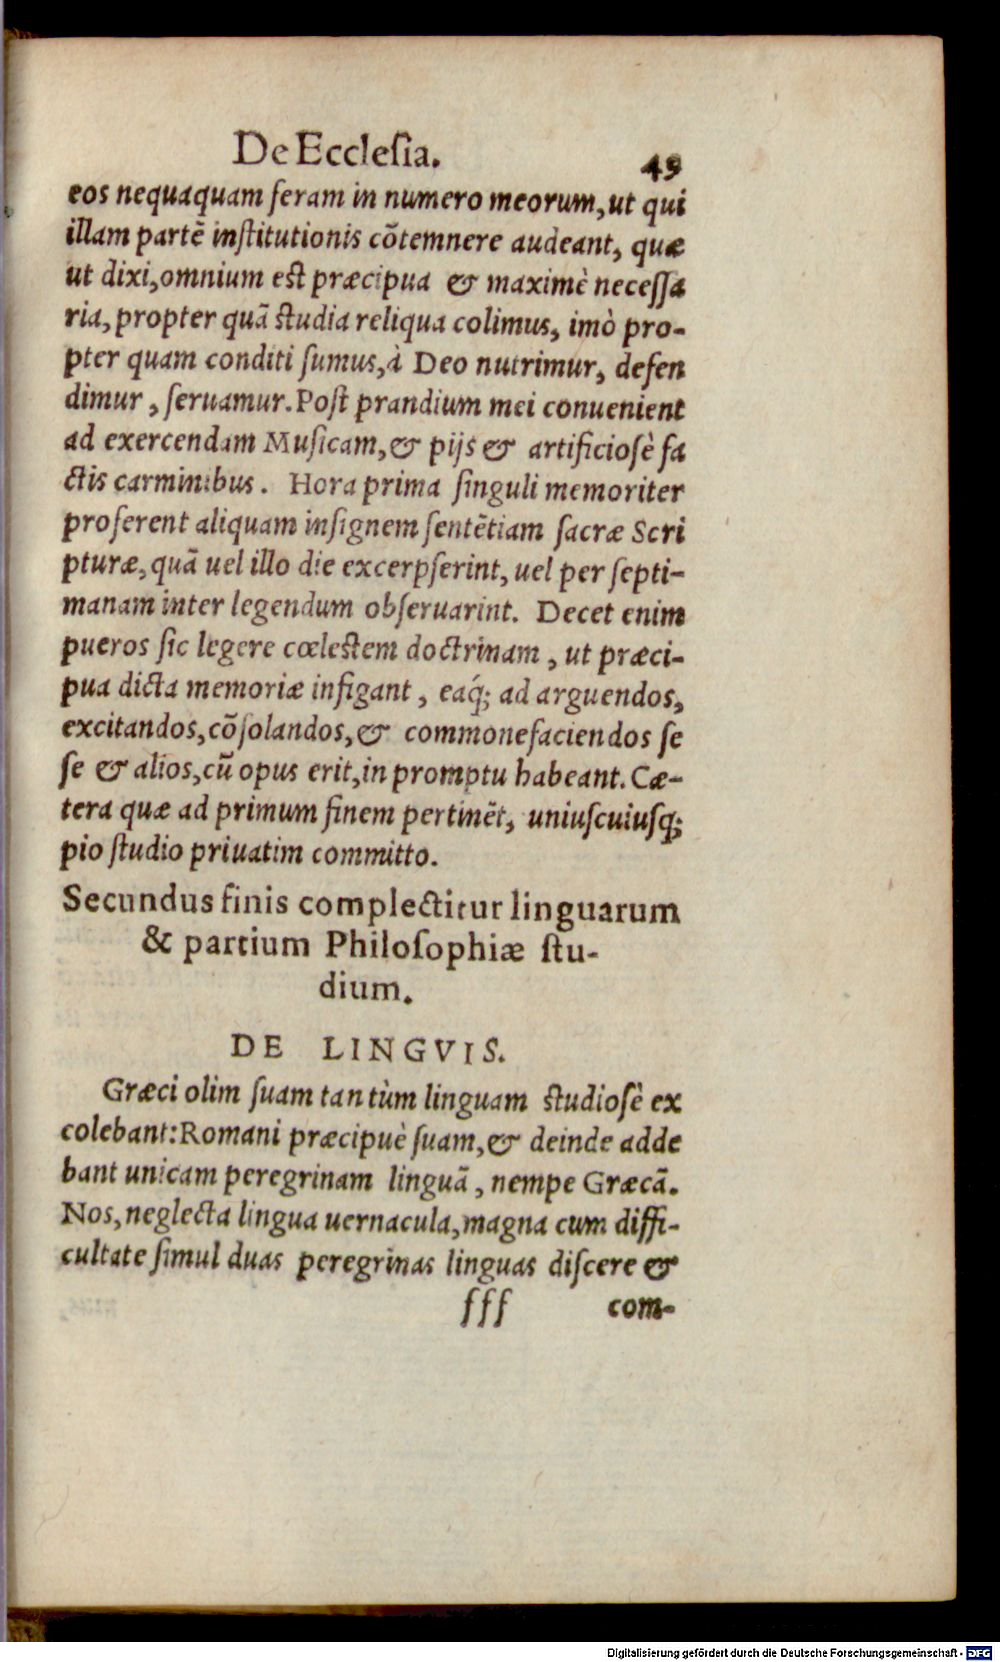 De Ecclesia. 49
eos nequaquam feram in numero meorum, ut qui
illam partẽ institutionis cõtemnere audeant, quæ
ut dixi, omnium est præcipua & maximè necessa
ria, propter quã studia reliqua colimus, imò pro-
pter quam conditi sumus, à Deo nutrimur, defen
dimur, seruamur. Post prandium mei conuenient
ad exercendam Musicam, & pijs & artificiosè fa
ctis carminibus. Hora prima singuli memoriter
proferent aliquam insignem sentẽtiam sacræ Scri
pturæ, quã uel illo die excerpserint, uel per septi-
manam inter legendum obseruarint. Decet enim
pueros sic legere cœlestem doctrinam, ut præci-
pua dicta memoriæ infigant, eaq́; ad arguendos,
excitandos, cõsolandos, & commonefaciendos se
se & alios, cũ opus erit, in promptu habeant. Cæ-
tera quæ ad primum finem pertinẽt, uniuscuiusq́;
pio studio priuatim committo.
Secundus finis complectitur linguarum
& partium Philosophiæ stu-
dium.
DE LINGVIS.
Græci olim suam tantùm linguam studiosè ex
colebant: Romani præcipuè suam, & deinde adde
bant unicam peregrinam linguã, nempe Græcã.
Nos, neglecta lingua uernacula, magna cum diffi-
cultate simul duas peregrinas linguas discere &
fff com-
Digitalisierung gefördert durch die Deutsche Forschungsgemeinschaft - DFG